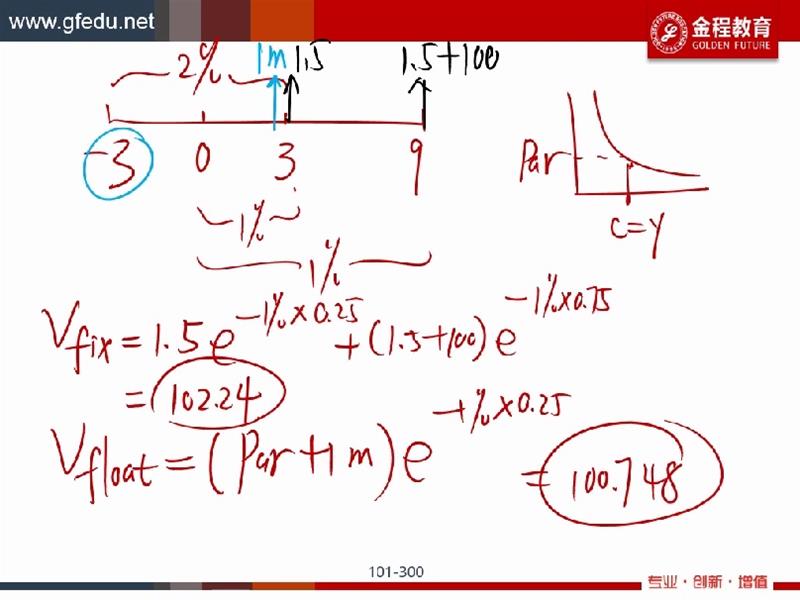 www.gfedu.net
金程教育
GOLDEN FUTURE
2% 1m 1.5 1.5+100
-3 0 3 9
1%
1%
Par
C=Y
V fix = 1.5e^-1%×0.25 + (1.5+100)e^-1%×0.75
= 102.24
V float = (Par+1m)e^-1%×0.25 = 100.748
101-300
专业·创新·增值